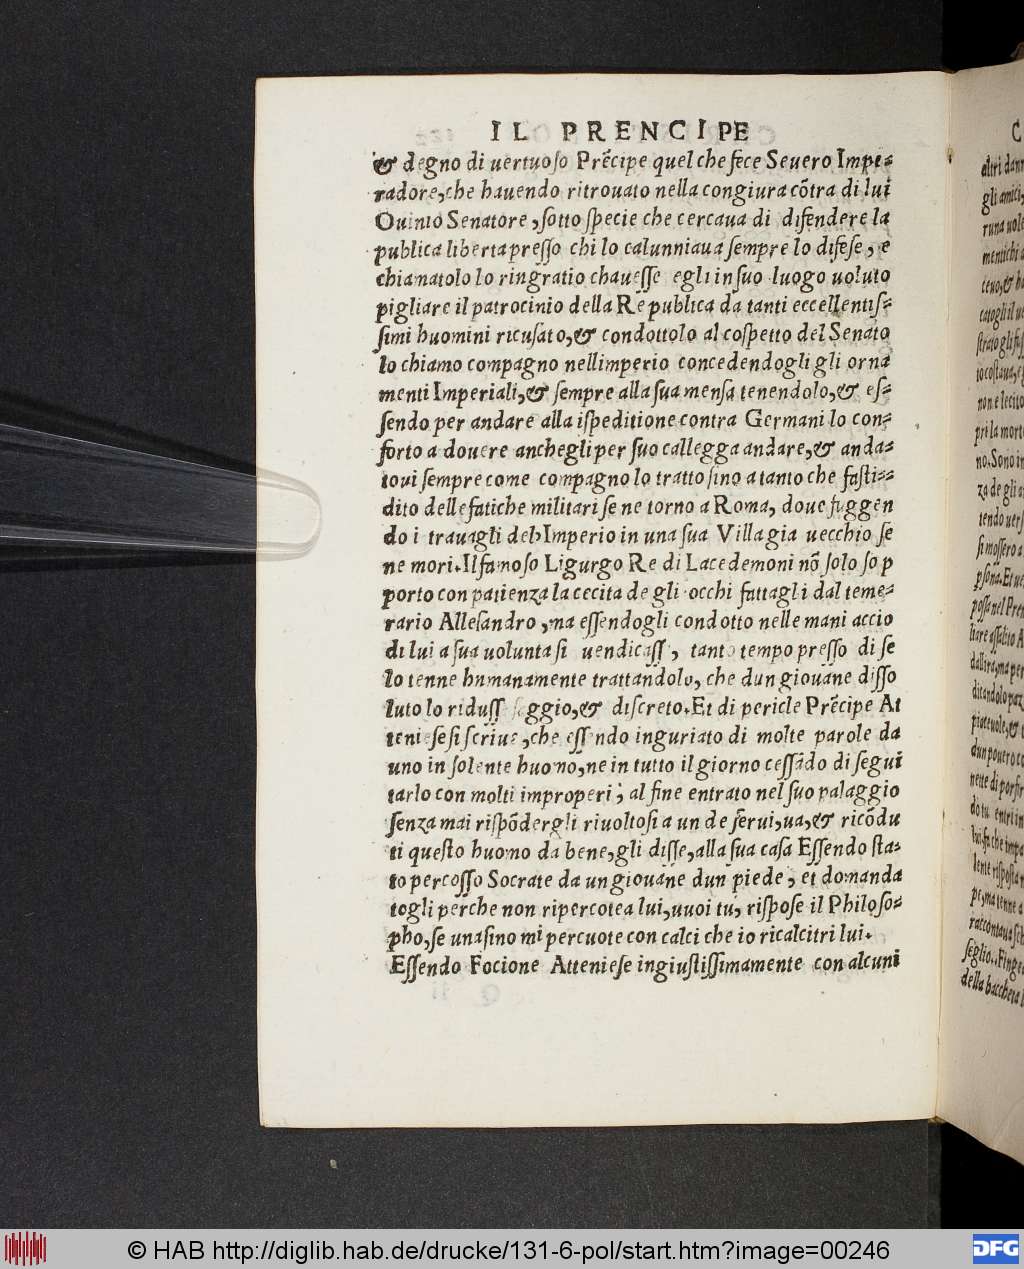 IL PRENCIPE
& degno di uertuoso Prẽcipe quel che fece Seuero Impe-
radore, che hauendo ritrouato nella congiura cõtra di lui
Quinto Senatore, sotto specie che cercaua di difendere la
publica liberta presso chi lo calunniaua sempre lo difese, e
chiamatolo lo ringratio chauesse egli in suo luogo uoluto
pigliare il patrocinio della Republica da tanti eccellentis-
simi huomini ricusato, & condottolo al cospetto del Senato
lo chiamo compagno nellimperio concedendogli gli orna
menti Imperiali, & sempre alla sua mensa tenendolo, & es-
sendo per andare alla ispeditione contra Germani lo con-
forto a douere anchegli per suo callegga andare, & anda-
toui sempre come compagno lo tratto sino a tanto che fasti-
dito delle fatiche militari se ne torno a Roma, doue fuggen
do i trauagli del Imperio in una sua Villa gia uecchio se
ne mori. Il famoso Ligurgo Re di Lacedemoni nõ solo sop
porto con patienza la cecita de gli occhi fattagli dal teme-
rario Allesandro, ma essendogli condotto nelle mani accio
di lui a sua uolunta si uendicass, tanto tempo presso di se
lo tenne humanamente trattandolo, che dun giouane disso
luto lo riduss saggio, & discreto. Et di pericle Prẽcipe At
teniese si scriue, che essendo inguriato di molte parole da
uno insolente huomo, ne in tutto il giorno cessãdo di segui
tarlo con molti improperi; al fine entrato nel suo palaggio
senza mai rispõdergli riuoltosi a un de serui, ua, & ricõdu
ti questo huomo da bene, gli disse, alla sua casa Essendo sta-
to percosso Socrate da un giouane dun piede, et domanda
togli perche non ripercotea lui, uuoi tu, rispose il Philoso-
pho, se unasino mi percuote con calci che io ricalcitri lui.
Essendo Focione Atteniese ingiustissimamente con alcuni
© HAB http://diglib.hab.de/drucke/131-6-pol/start.htm?image=00246
DFG